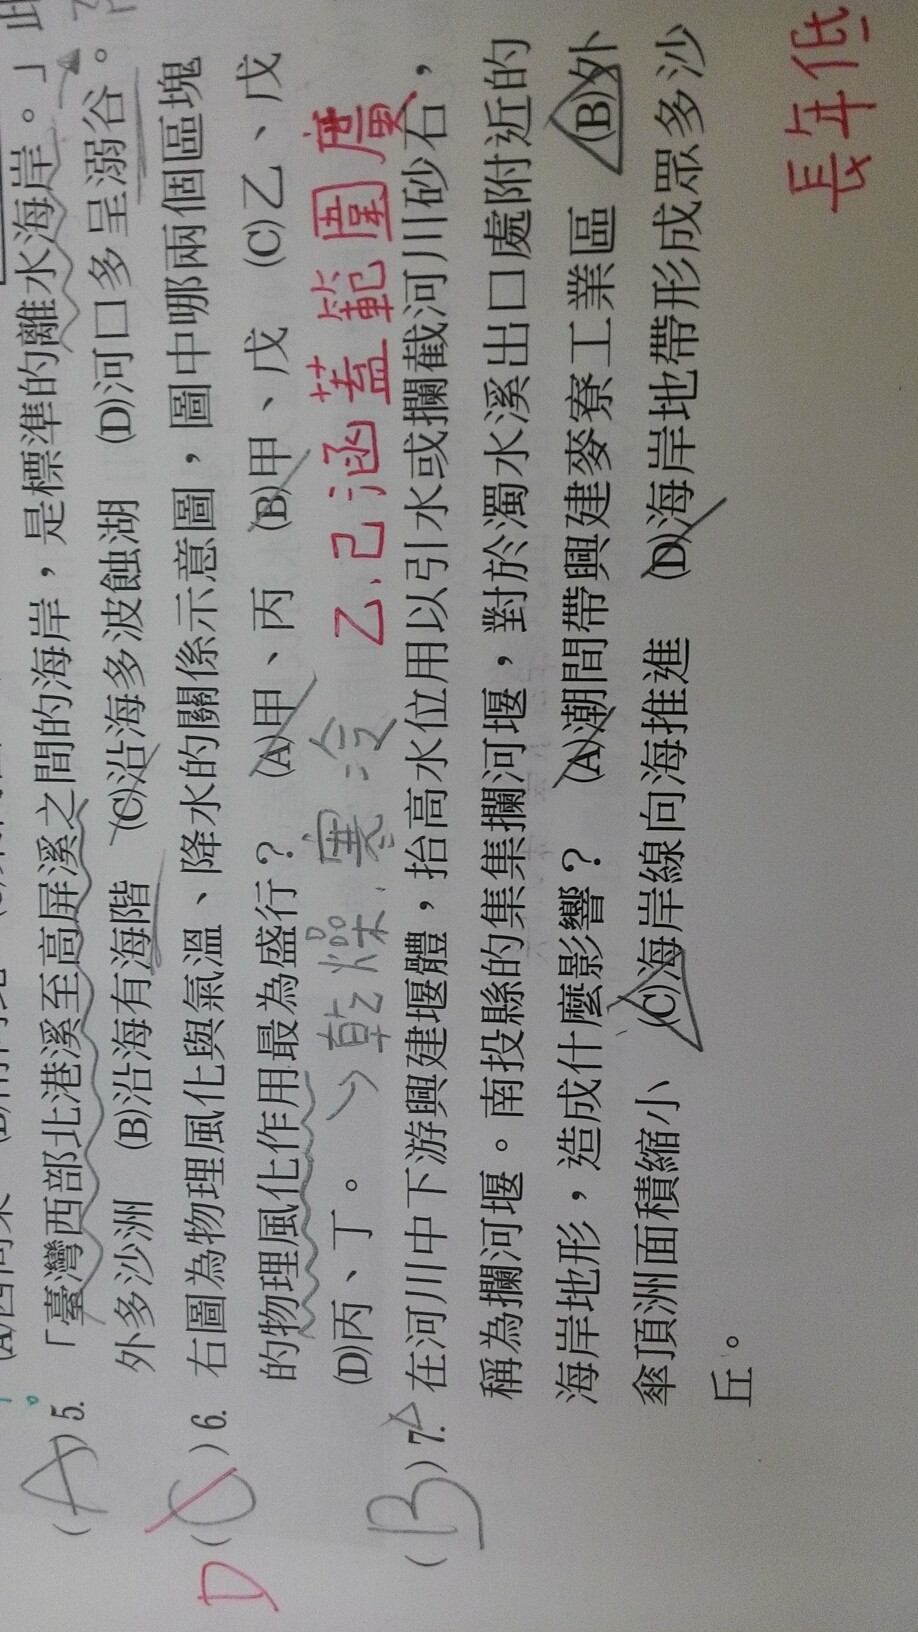 「臺灣西部北港溪至高屏溪之間的海岸,是標準的離水海岸。」此
(A) 5.
外多沙洲 (B)沿海有海階 (C)沿海多波蝕湖 (D)河口多呈溺谷。
D (C) 6. 右圖為物理風化與氣溫、降水的關係示意圖,圖中哪兩個區塊
的物理風化作用最為盛行? (A)甲、丙 (B)甲、戊 (C)乙、戊
(D)丙、丁。
乾燥、寒冷
乙、己涵蓋範圍廣
(B) 7. 在河川中下游興建堰體,抬高水位用以引水或攔截河川砂石,
稱為攔河堰。南投縣的集集攔河堰,對於濁水溪出口處附近的
海岸地形,造成什麼影響? (A)潮間帶興建麥寮工業區 (B)外
傘頂洲面積縮小 (C)海岸線向海推進 (D)海岸地帶形成眾多沙
丘。
長年低